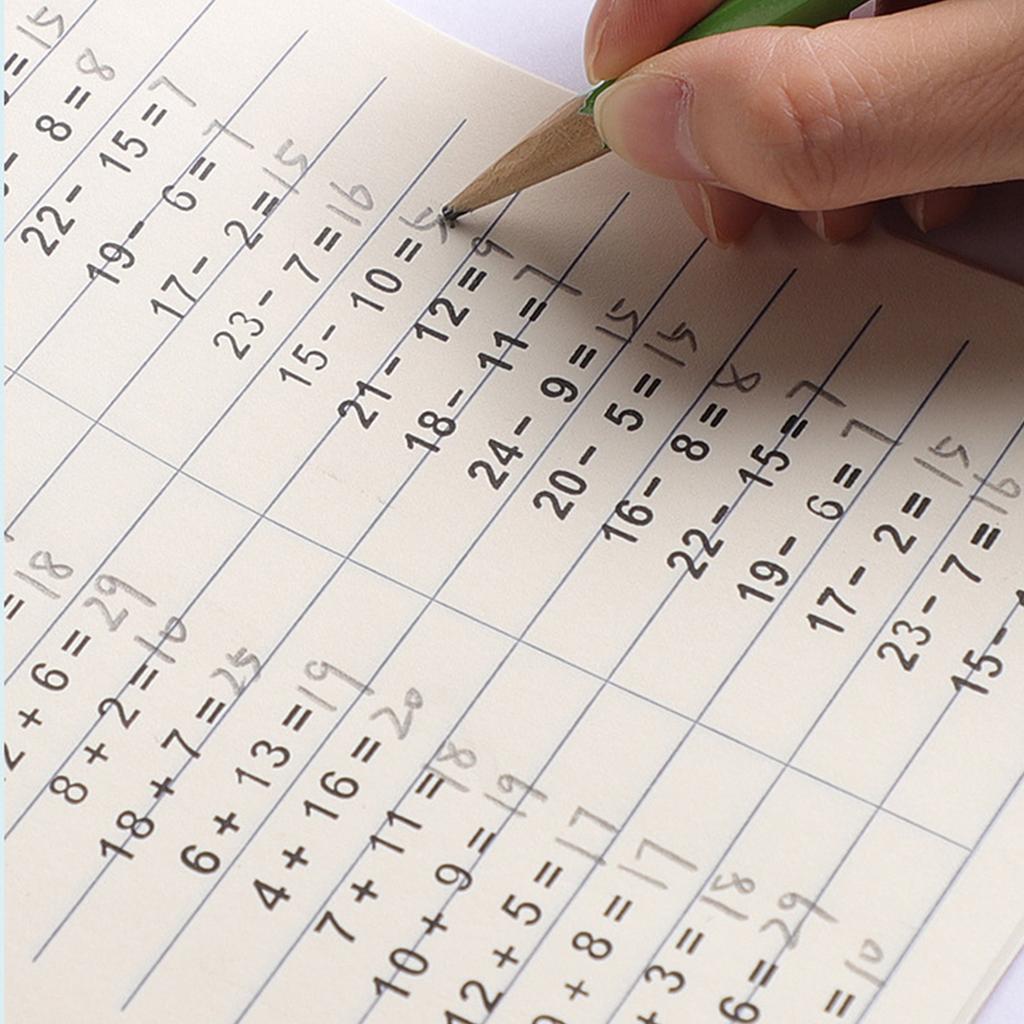 = 15
- 8 = 8
22- 15 = 7
19- 6 = 7
17- 2 = 15
23- 7 = 16
15- 10 = 5
21- 12 = 9
18- 11 = 7
24- 9 = 15
20- 5 = 15
16- 8 = 8
22- 15 = 7
19- 6 = 7
17- 2 = 15
23- 7 = 16
15-
= 18
2 + 6 = 29
8 + 2 = 10
18 + 7 = 25
6 + 13 = 19
4 + 16 = 20
7 + 11 = 18
10 + 9 = 19
12 + 5 = 17
9 + 8 = 17
+ 3 = 18
6 = 29
= 10